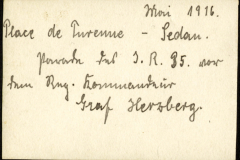 Mai 1916.
Place de Turenne - Sedan.
Parade des I. R. 35. vor
dem Reg. Kommandeur
Graf Herzberg.